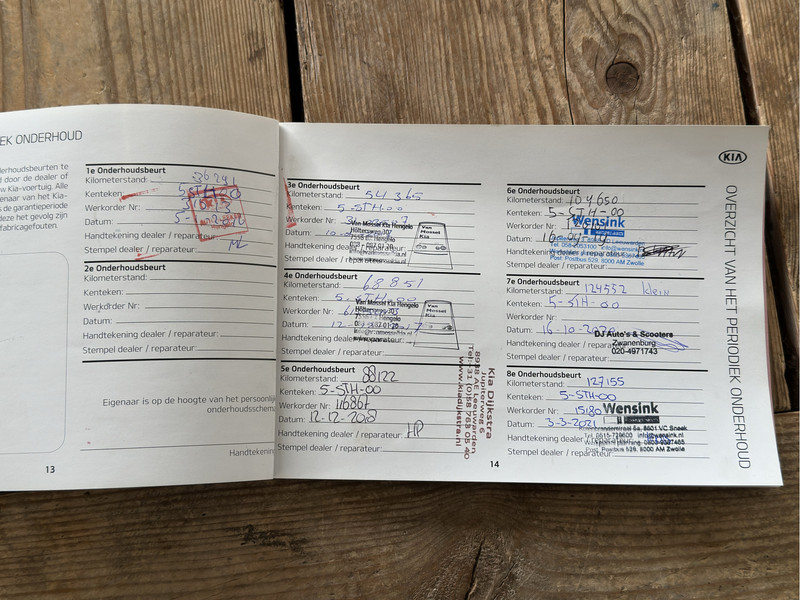 EK ONDERHOUD
derhoudsbeurten te
d door de dealer of
w Kia-voertuig. Alle
enaar van het Kia-
s de garantieperiode
deze het gevolg zijn
fabricagefouten.
1e Onderhoudsbeurt
Kilometerstand:
Kenteken:
Werkorder Nr:
Datum:
Handtekening dealer / reparateur:
Stempel dealer / reparateur:
2e Onderhoudsbeurt
Kilometerstand:
Kenteken:
Werkorder Nr:
Datum:
Handtekening dealer / reparateur:
Stempel dealer / reparateur:
Eigenaar is op de hoogte van het persoonlij
onderhoudsschema
Handtekening
13
3e Onderhoudsbeurt
Kilometerstand: 54365
Kenteken: 5-STH-00
Werkorder Nr:
Datum:
Van Mossel Kia Hengelo
Van
Mossel
Kia
Handtekening dealer / reparateur
Stempel dealer / reparateur
4e Onderhoudsbeurt
Kilometerstand: 68851
Kenteken: 5-STH-00
Werkorder Nr:
Datum:
Van Mossel Kia Hengelo
Van
Mossel
Kia
Handtekening dealer / reparateur
Stempel dealer / reparateur:
5e Onderhoudsbeurt
Kilometerstand: 88122
Kenteken: 5-STH-00
Werkorder Nr: 116867
Datum: 12-12-2018
Handtekening dealer / reparateur:
Stempel dealer / reparateur:
Kia Dijkstra
Jupiterweg 6
8938 AE Leeuwarden
Tel: +31 (0)58 763 05 40
www.kiadijkstra.nl
14
KIA
OVERZICHT VAN HET PERIODIEK ONDERHOUD
6e Onderhoudsbeurt
Kilometerstand: 104650
Kenteken: 5-STH-00
Werkorder Nr:
Datum:
Wensink
Handtekening dealer / reparateur
Post: Postbus 529, 8000 AM Zwolle
Stempel dealer / reparateur:
7e Onderhoudsbeurt
Kilometerstand: 124552 klein
Kenteken: 5-STH-00
Werkorder Nr:
Datum: 16-10-2020
DJ Auto's & Scooters
Zwanenburg
020-4971743
Handtekening dealer / reparateur:
Stempel dealer / reparateur:
8e Onderhoudsbeurt
Kilometerstand: 127155
Kenteken: 5-STH-00
Werkorder Nr: 15180
Wensink
Datum: 3-3-2021
8601 VC Sneek
Handtekening dealer
Tel. 0515-729600 info@wensink.nl
Post: Postbus 529, 8000 AM Zwolle
Stempel dealer / reparateur: